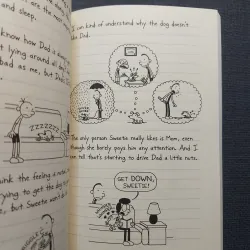 and sleep.
know how Dad
t lying around all day
bad as me, but Dad
ZZZZZZ
think the feeling is
rying to get the dog
but Sweetie won't
I can kind of understand why the dog doesn't
like Dad.
The only person Sweetie really likes is Mom, even
though she barely pays him any attention. And I
can tell that's starting to drive Dad a little nuts.
GET DOWN,
SWEETIE!